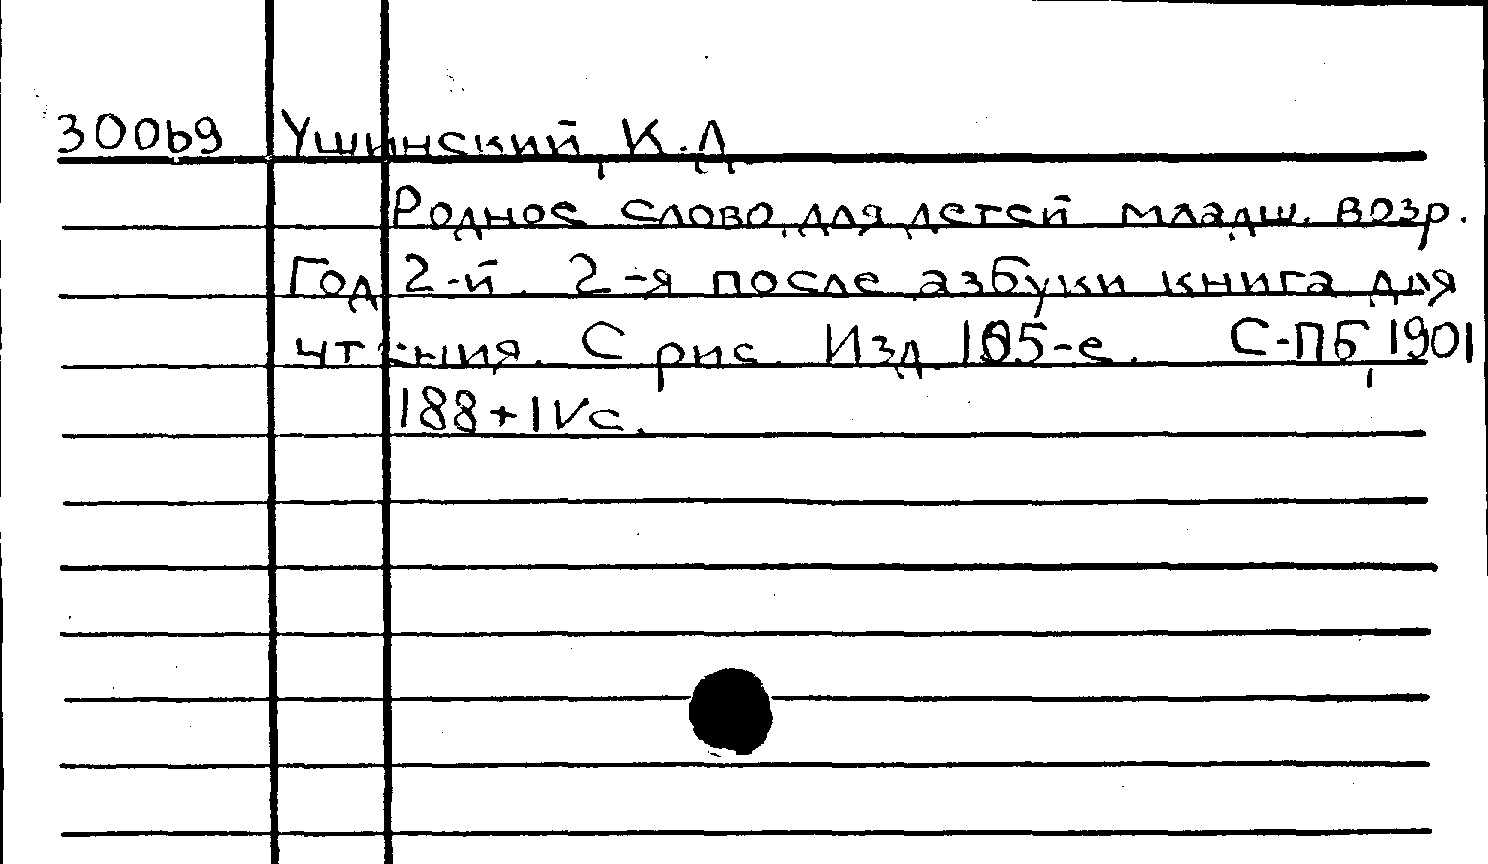 30069 Ушинский, К.Д
Родное слово для детей младш. возр.
Год 2-й. 2-я после азбуки книга для
чтения. С рис. Изд 105-е. С-ПБ, 1901
188+IVс.